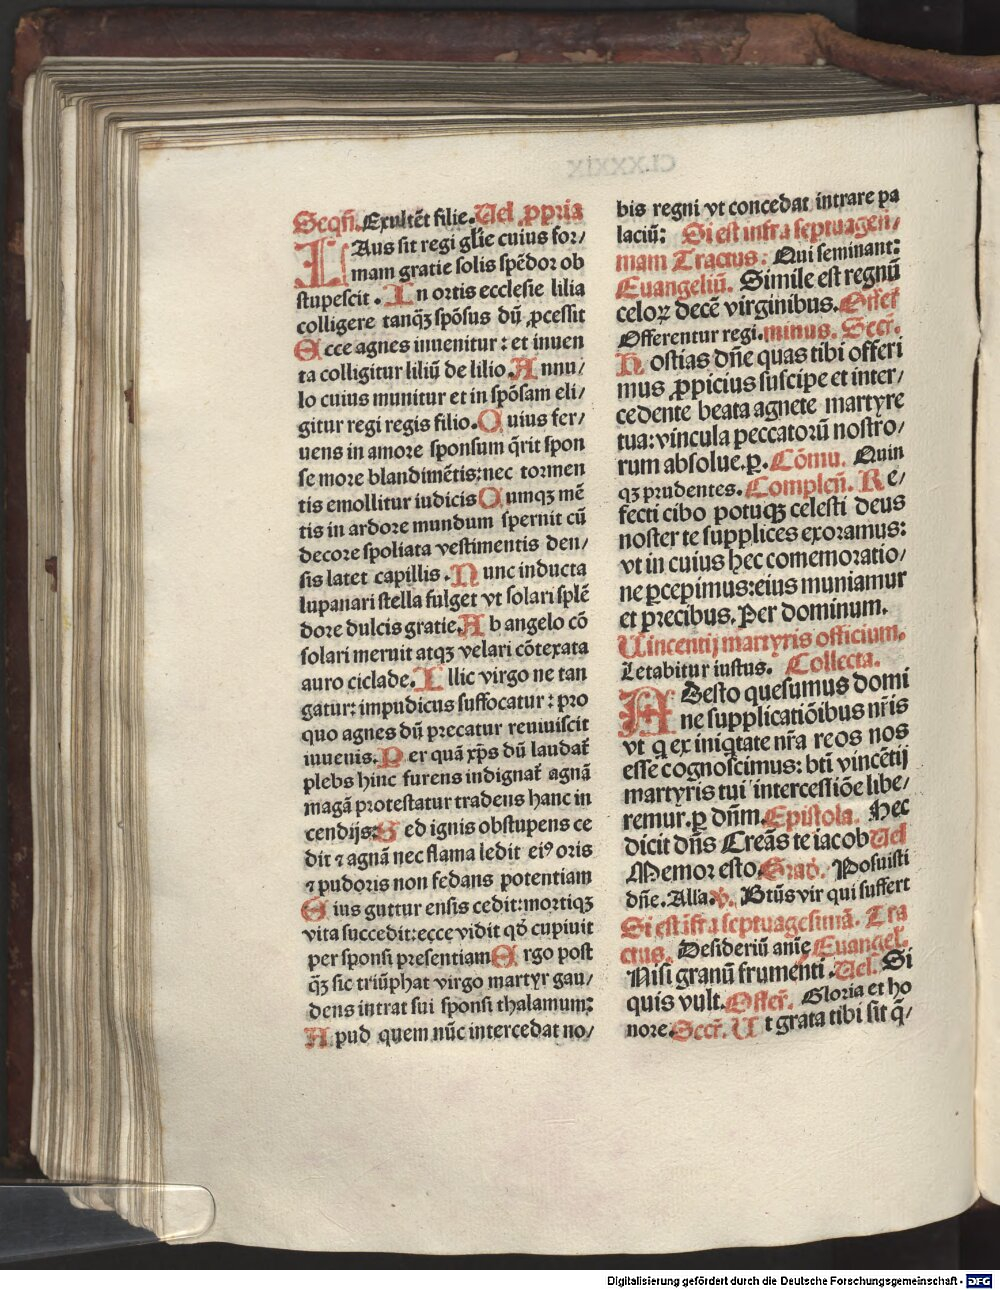 Seqñ. Exultēt filie. Uel ꝓpria
LAus sit regi gl'ie cuius for/
mam gratie solis spēdor ob
stupescit. In ortis ecclesie lilia
colligere tanqꝫ spōsus dū ꝓcessit
Ecce agnes inuenitur: et inuen
ta colligitur liliū de lilio. Annu/
lo cuius munitur et in spōsam eli/
gitur regi regis filio. Cuius fer/
uens in amore sponsum q̄rit spon
se more blandimētis: nec tormen
tis emollitur iudicis Cumqꝫ mē
tis in ardore mundum spernit cū
decore spoliata vestimentis den/
sis latet capillis. Nunc inducta
lupanari stella fulget vt solari splē
dore dulcis gratie. Ab angelo cō
solari meruit atqꝫ velari cōtexata
auro ciclade. Illic virgo ne tan
gatur: impudicus suffocatur: pro
quo agnes dū precatur reuiuiscit
iuuenis. Per quā xp̄s dū laudat̄
plebs hinc furens indignat̄ agnā
magā protestatur tradens hanc in
cendijs: Sed ignis obstupens ce
dit ⁊ agnā nec flama ledit eiꝰ oris
⁊ pudoris non fedans potentiam
Eius guttur ensis cedit: mortiqꝫ
vita succedit: ecce vidit qd̄ cupiuit
per sponsi presentiam Ergo post
q̄ꝫ sic triūphat virgo martyr gau/
dens intrat sui sponsi thalamum:
Apud quem nūc intercedat no/
bis regni vt concedat intrare pa
laciū: Si est infra septuagesi/
mam Tractus. Qui seminant:
Euangeliū. Simile est regnū
celoꝝ decē virginibus. Offer̄
Offerentur regi. minus. Secr̄.
Hostias dn̄e quas tibi offeri
mus ꝓpicius suscipe et inter/
cedente beata agnete martyre
tua: vincula peccatorū nostro/
rum absolue. ꝑ. Cōmu. Quin
qꝫ prudentes. Complēn̄. Re/
fecti cibo potuqꝫ celesti deus
noster te supplices exoramus:
vt in cuius hec comemoratio/
ne ꝑcepimus: eius muniamur
et precibus. Per dominum.
Uincentij martyris officium.
Letabitur iustus. Collecta.
ADesto quesumus domi
ne supplicatiōibus nr̄is
vt q ex iniqtate nr̄a reos nos
esse cognoscimus: bt̄i vincētij
martyris tui intercessiōe libe/
remur. ꝑ dn̄m. Epistola. Hec
dicit dn̄s Creās te iacob Uel
Memor esto. Grad. Posuisti
dn̄e. Alla. ℣. Bt̄us vir qui suffert
Si est īfra septuagesimā. Tra
ctus. Desideriū anīe Euangel.
Nisi granū frumenti. Uel. Si
quis vult. Offer̄. Gloria et ho
nore. Secr̄. Ut grata tibi sit q̄/
Digitalisierung gefördert durch die Deutsche Forschungsgemeinschaft - DFG